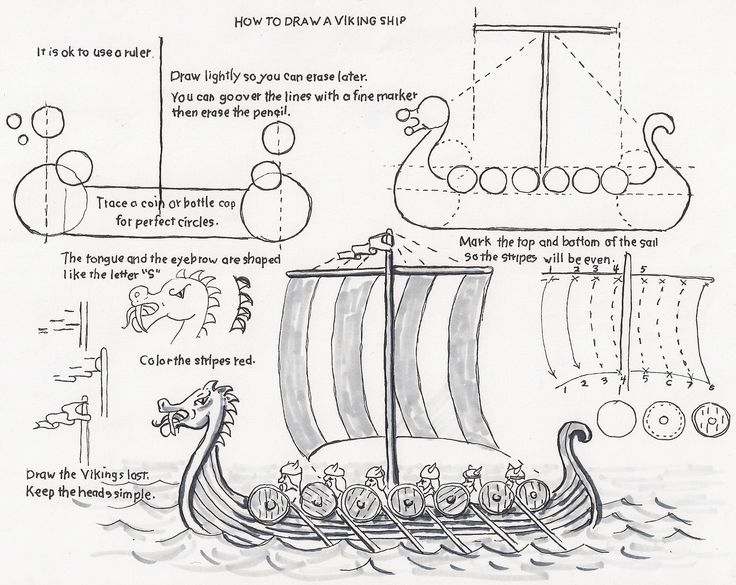 HOW TO DRAW A VIKING SHIP
It is ok to use a ruler.
Draw lightly so you can erase later.
You can go over the lines with a fine marker
then erase the pencil.
Trace a coin or bottle cap
for perfect circles.
The tongue and the eyebrow are shaped
like the letter "S"
Mark the top and bottom of the sail
so the stripes will be even.
1 2 3 4 5
1 2 3 4 5 6 7 8
Color the stripes red.
Draw the Vikings last.
Keep the heads simple.